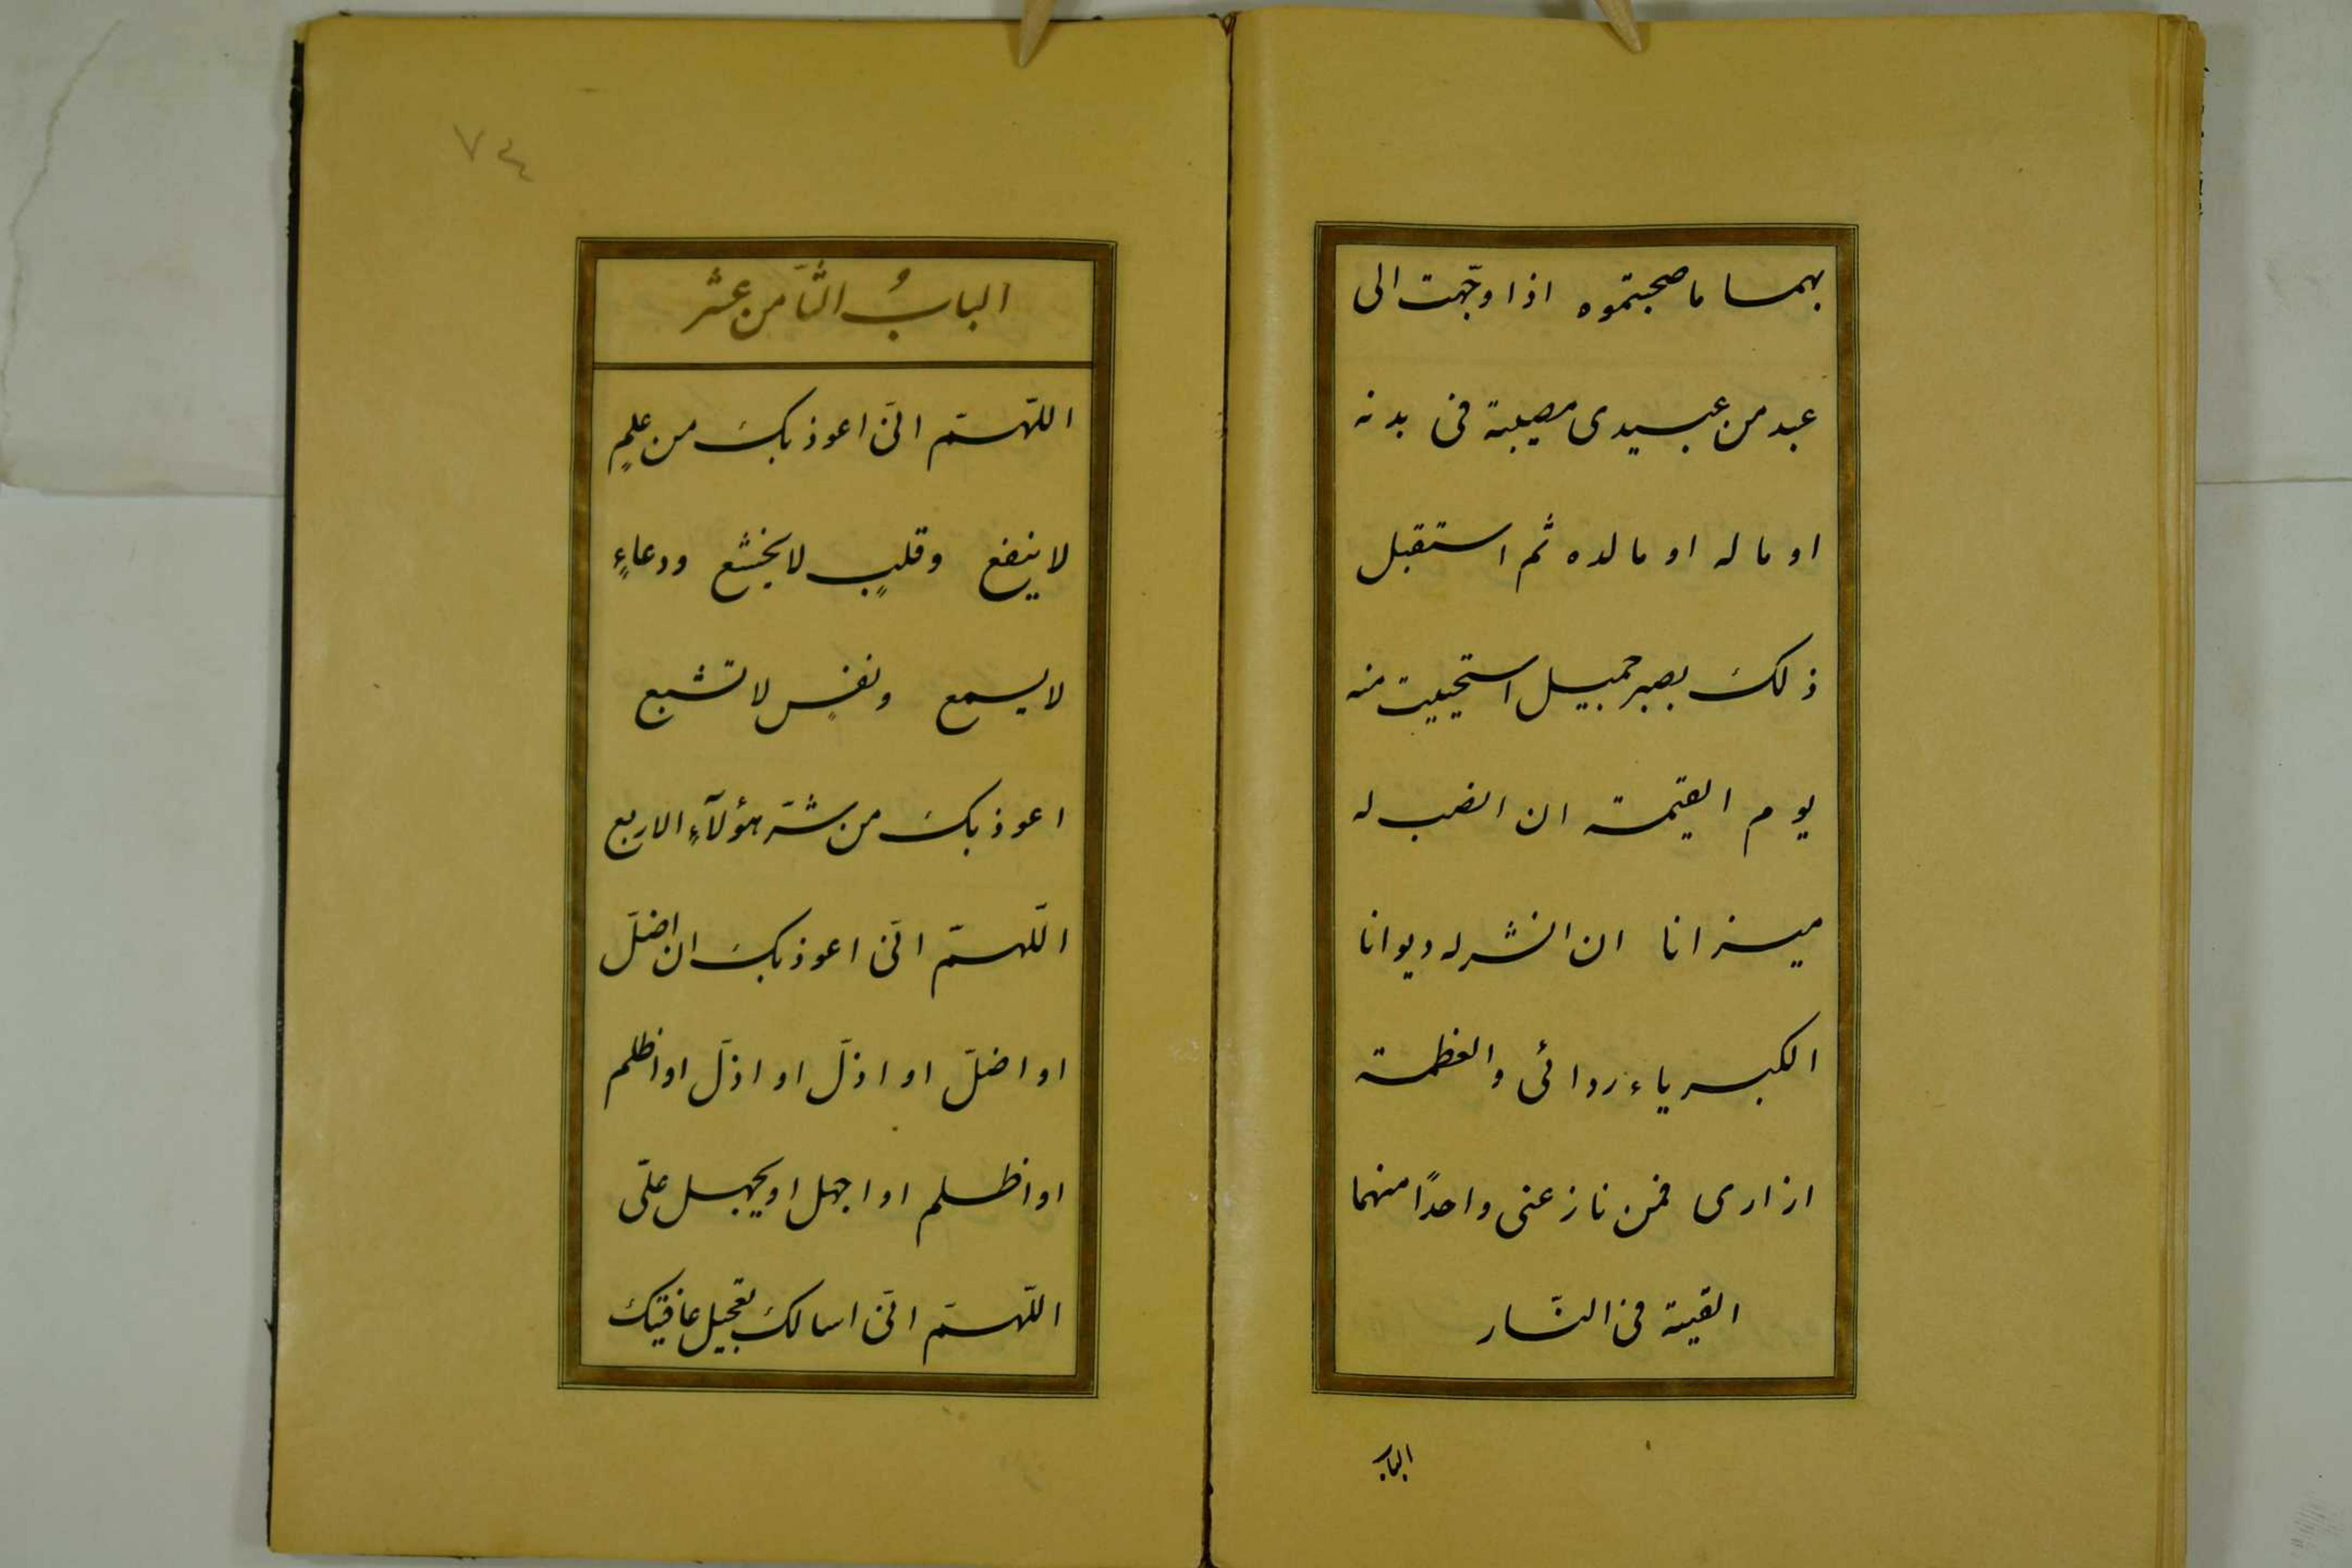 بهما ما صحبتموه اذا وجّهت الى
عبد من عبيدى مصيبة فى بدنه
او ماله او مالده ثم استقبل
ذلك بصبر جميل استحييت منه
يوم القيمة ان انصب له
ميزانا ان انشر له ديوانا
الكبرياء ردائى والعظمة
ازارى فمن نازعنى واحدًا منهما
القيته فى النّار
الباب
٧٤
البابُ الثّامن عشر
اللّهمّ انّى اعوذ بكَ من علمٍ
لا ينفع وقلبٍ لا يخشع ودعاءٍ
لا يسمع ونفسٍ لا تشبع
اعوذ بكَ من شرّ هؤلآءِ الاربع
اللّهمّ انّى اعوذ بكَ ان اضلّ
او اضلّ او اذلّ او اذلّ او اظلم
او اظلم او اجهل او يجهل علىّ
اللّهمّ انّى اسالكَ تعجيل عافيتك